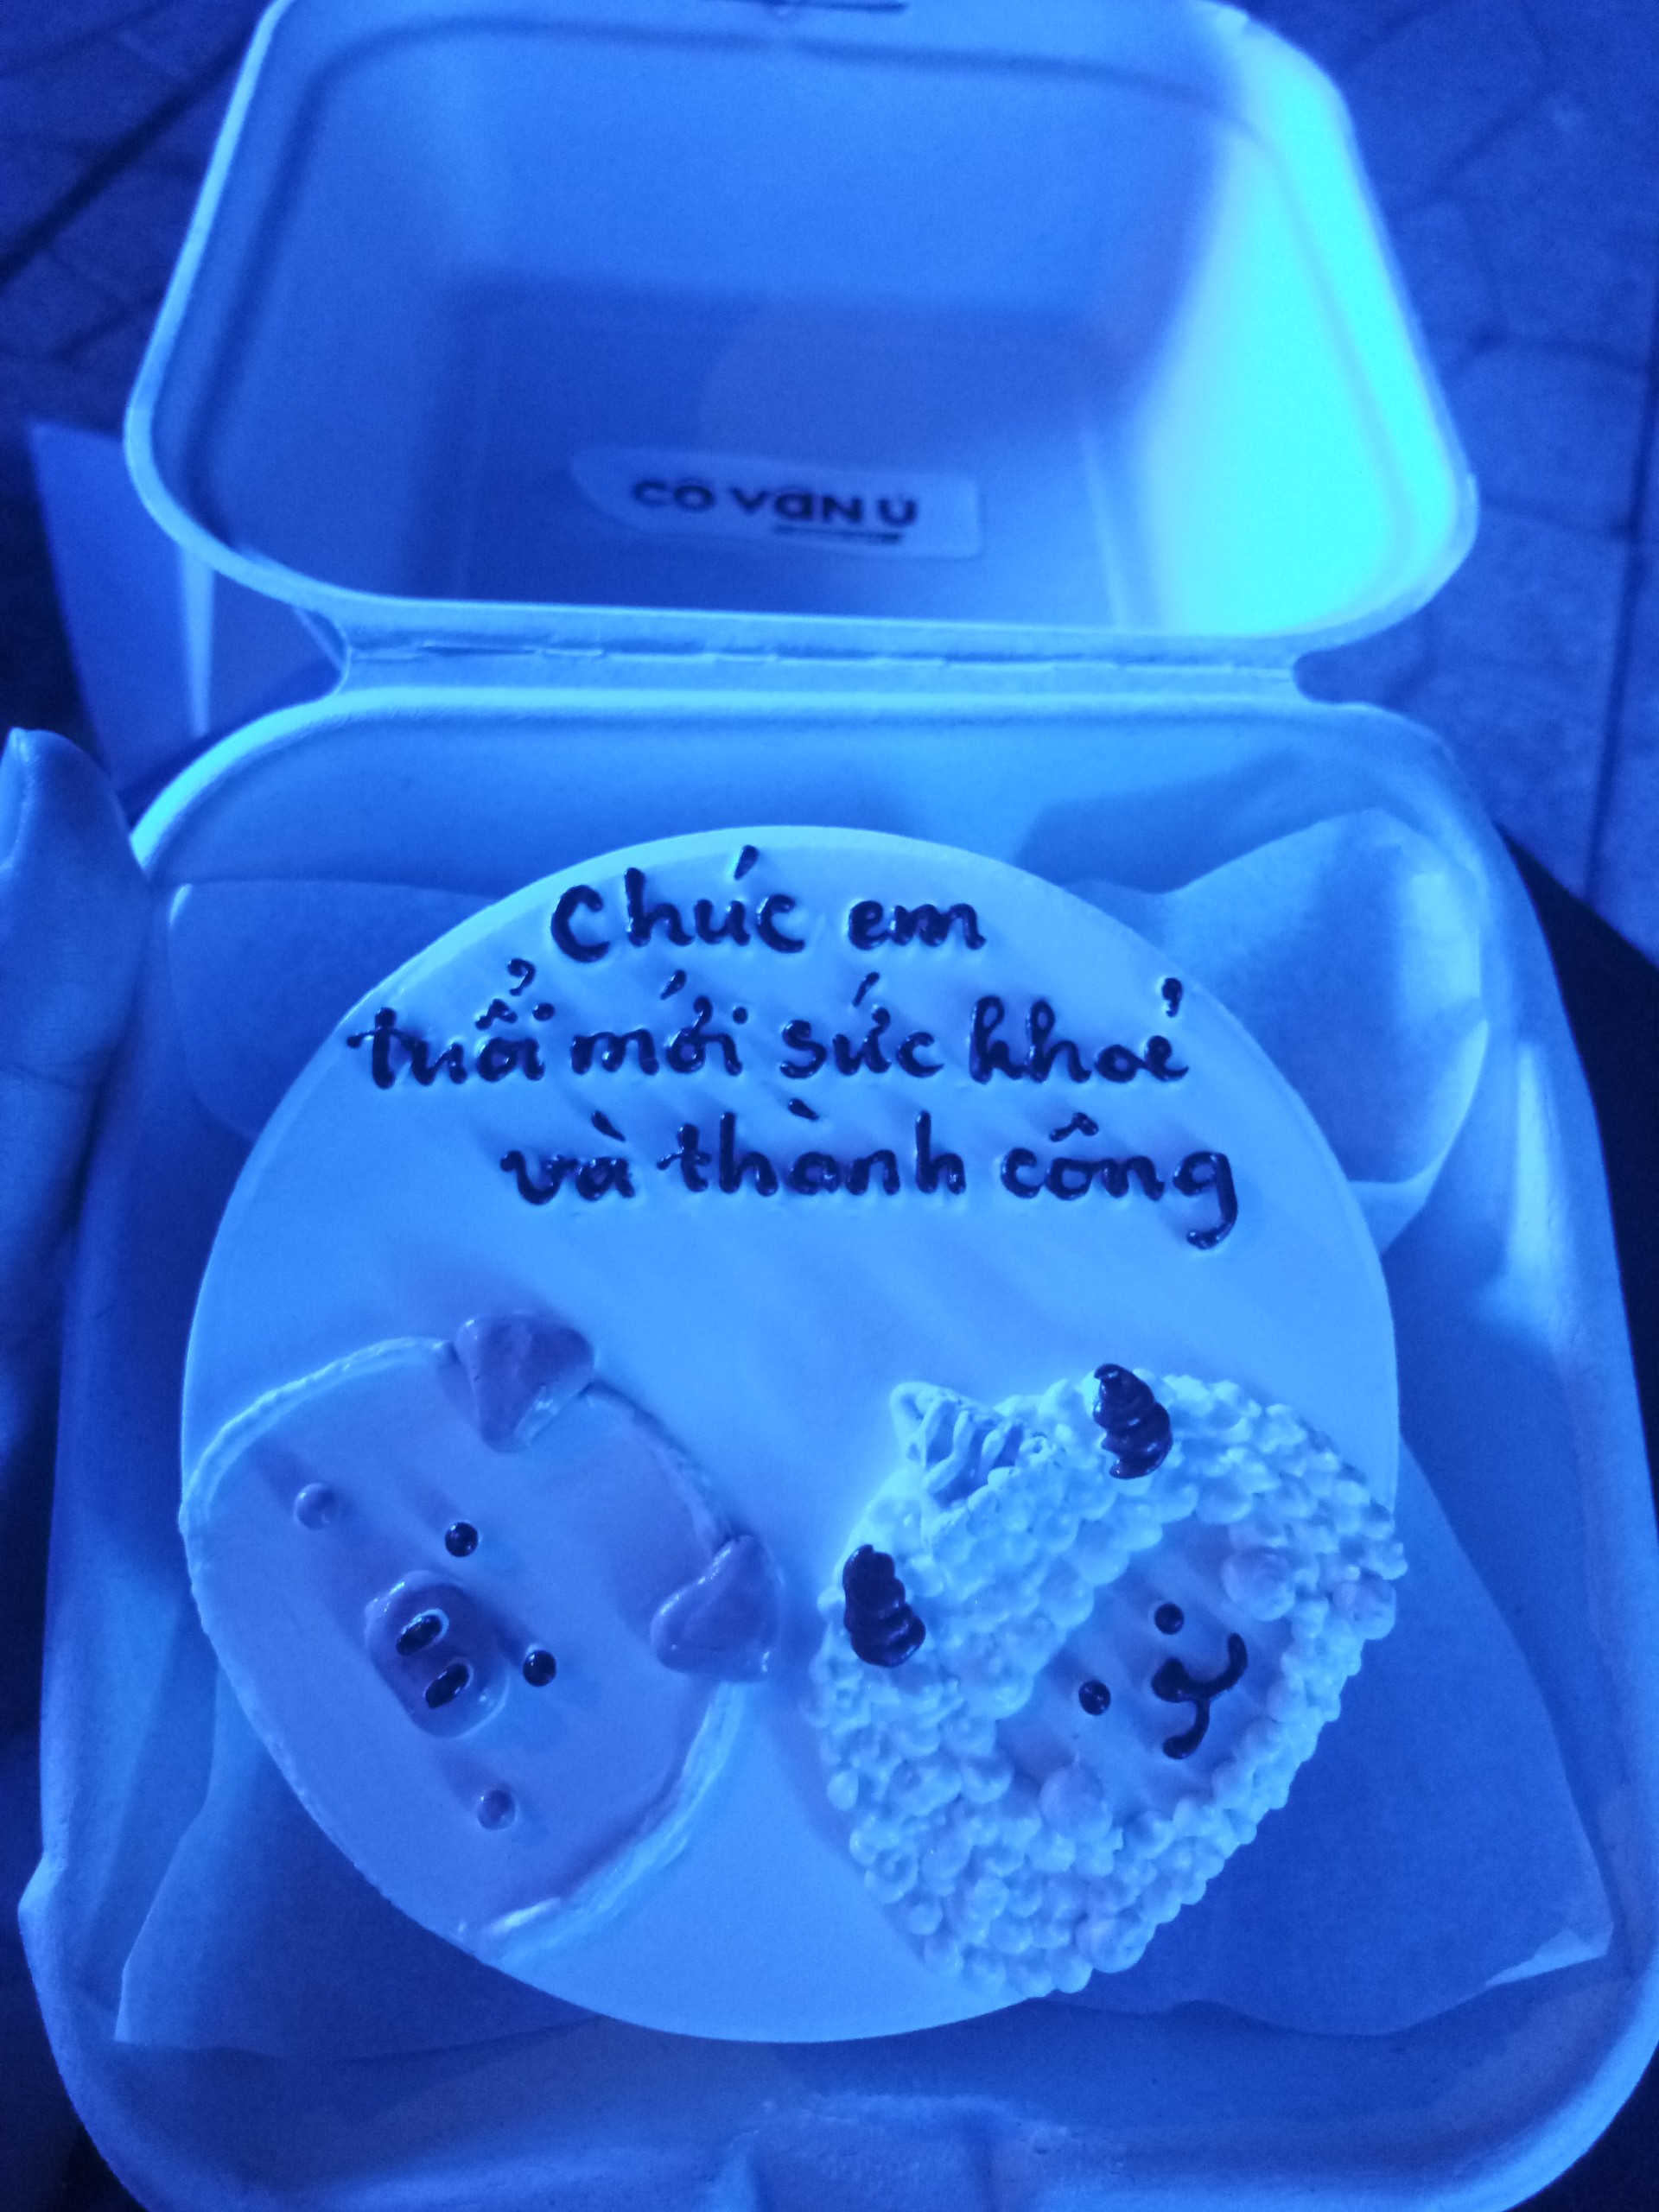 CÔ VẤN Ú
Chúc em
tuổi mới sức khoẻ
và thành công